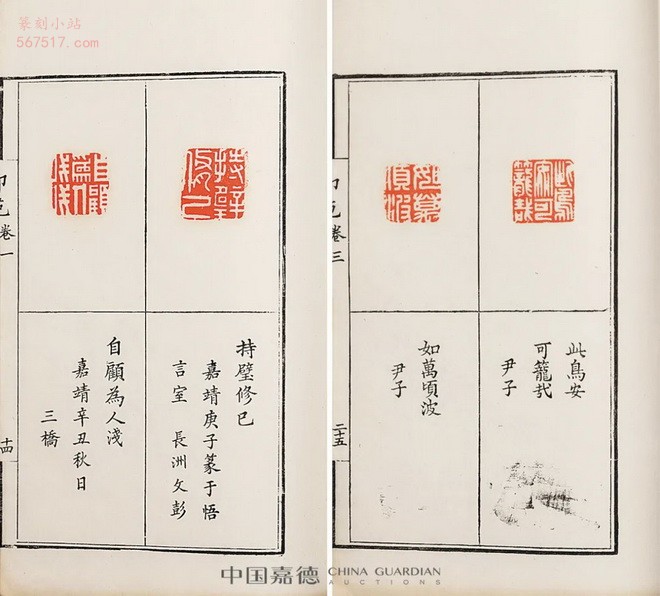 篆刻小站
567517.com
持璧修己
持璧修已
嘉靖庚子篆于悟
言室 長洲文彭
自顧為人淺
嘉靖辛丑秋日
三橋
卷一
十四
此鳥安可籠哉
此鳥安
可籠哉
尹子
如萬頃波
如萬頃波
尹子
卷三
二十五
中国嘉德 CHINA GUARDIAN
AUCTIONS